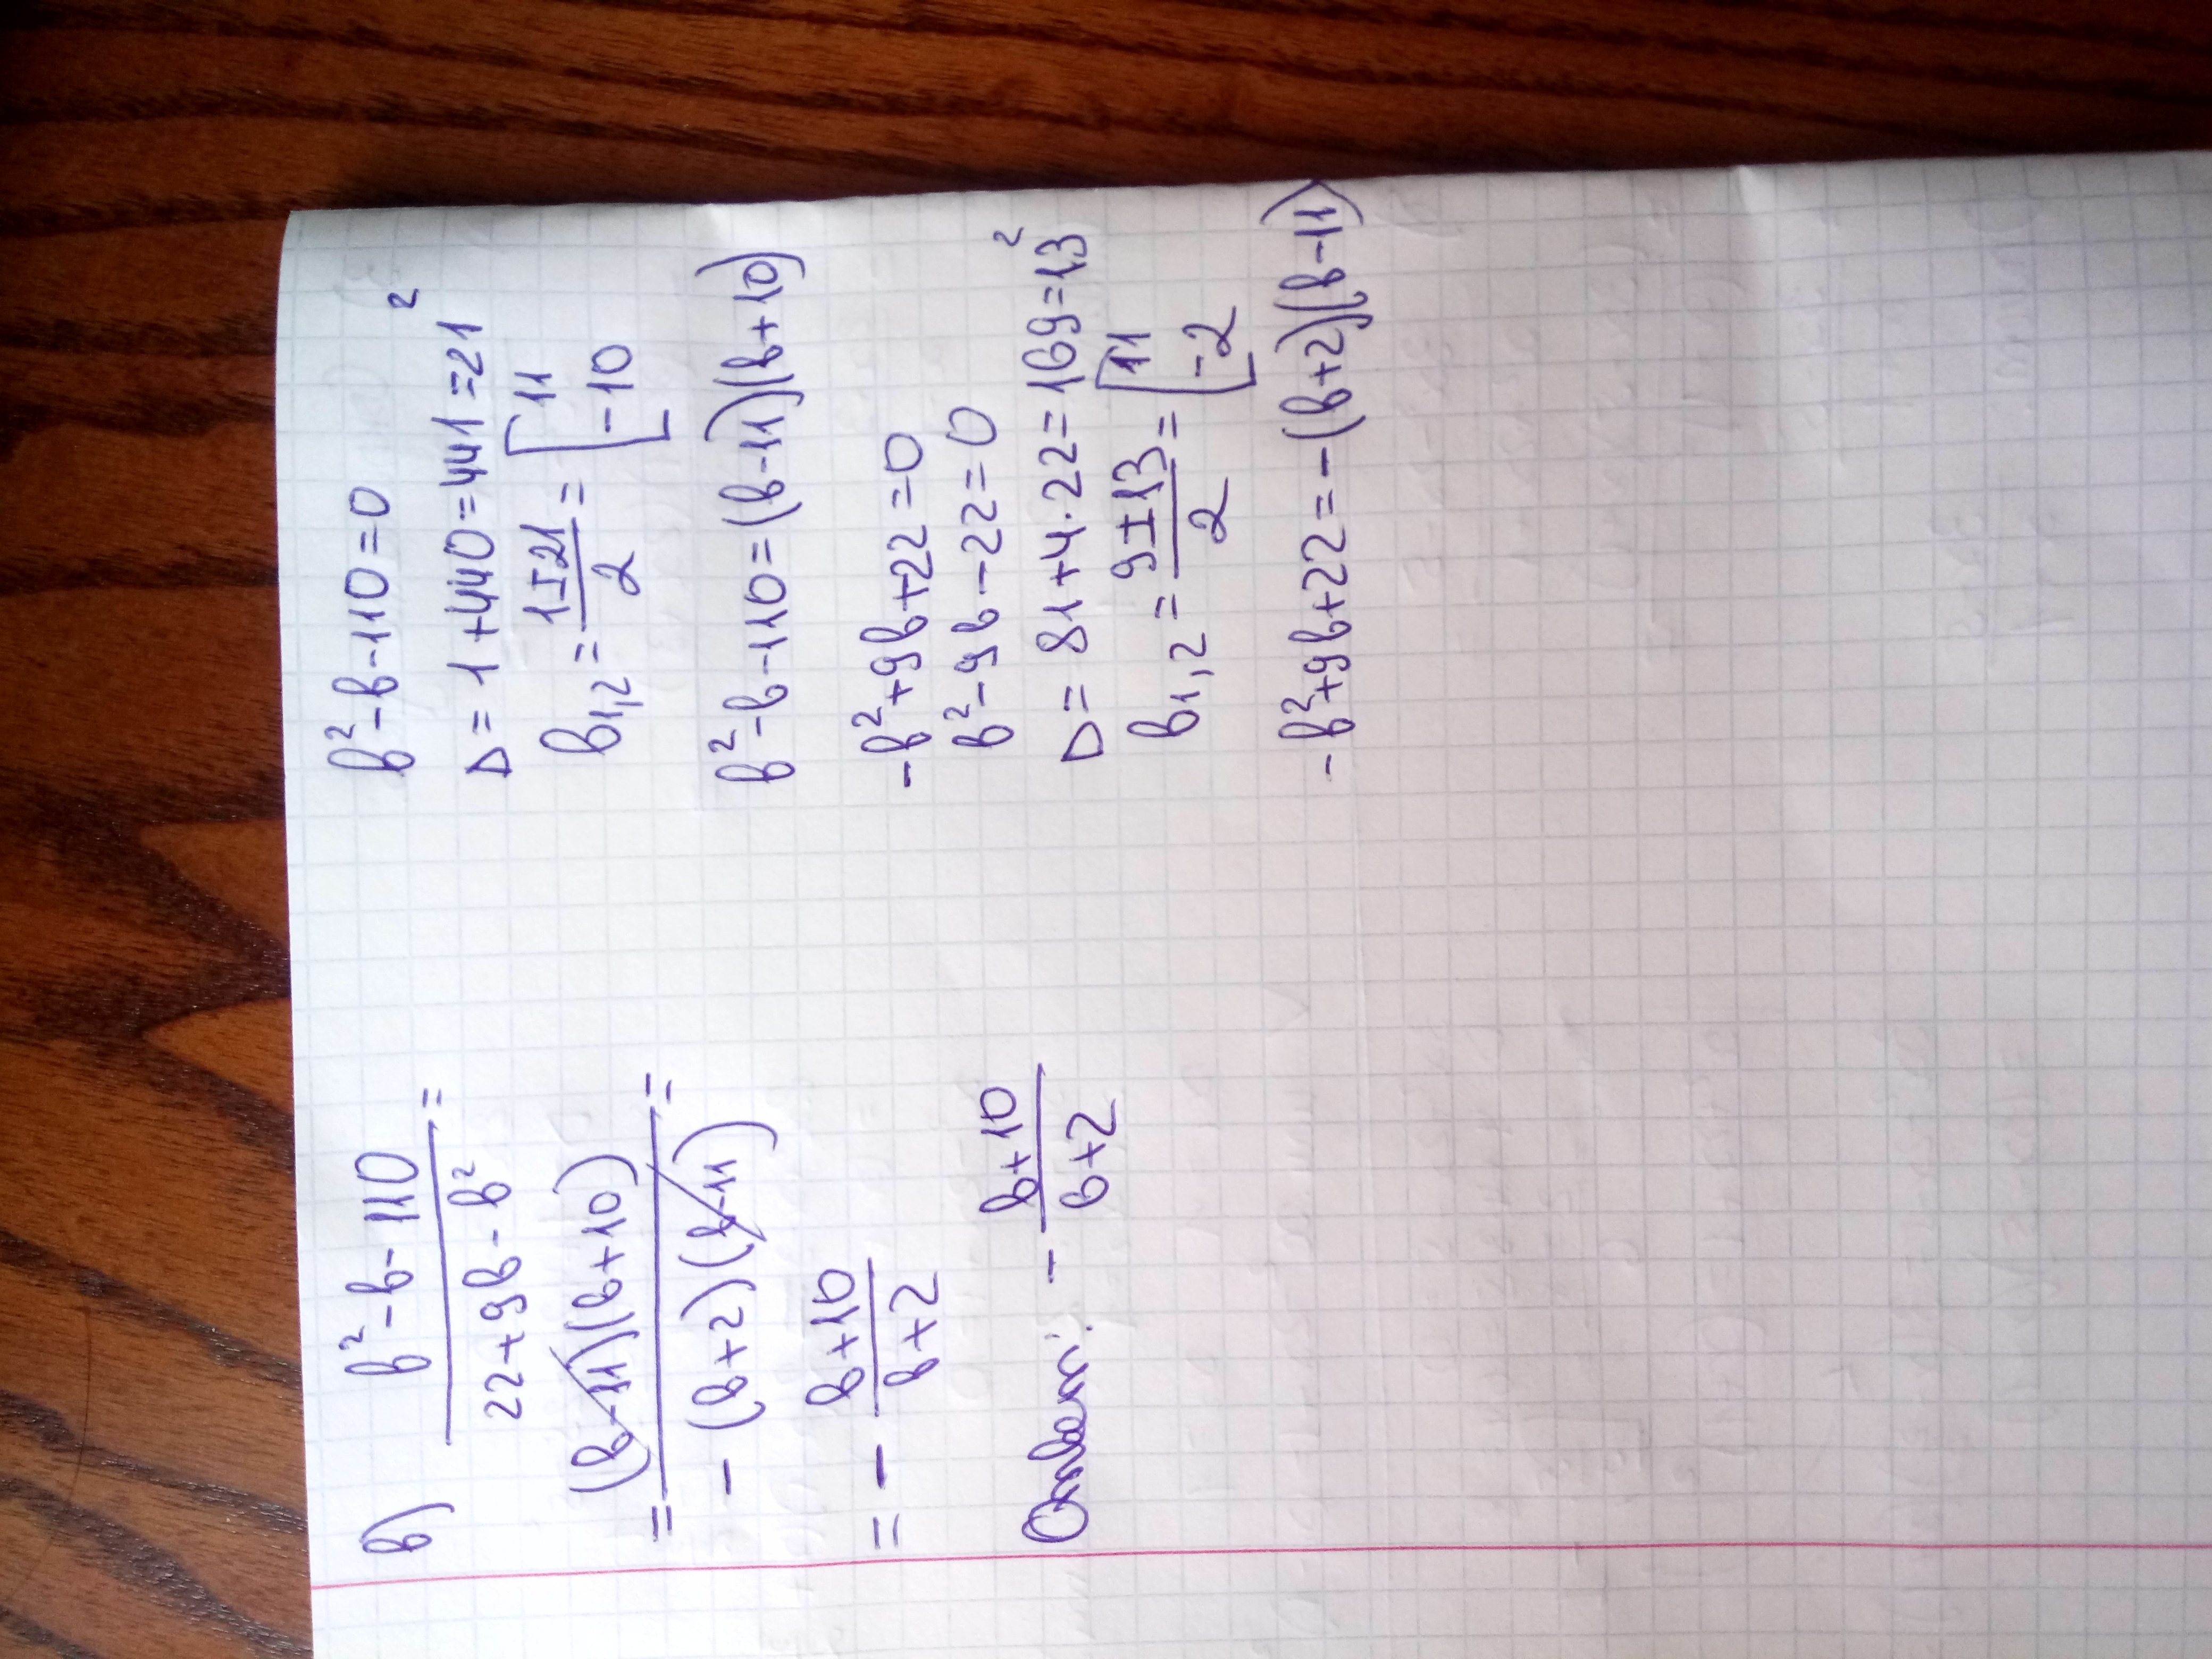 в) (b² - b - 110)/(22 + 9b - b²) =
= ((b - 11)(b + 10))/(- (b + 2)(b - 11)) =
= - (b + 10)/(b + 2)
Ответ: - (b + 10)/(b + 2)
b² - b - 110 = 0
D = 1 + 440 = 441 = 21²
b₁,₂ = (1 ± 21)/2 = [11
-10
b² - b - 110 = (b - 11)(b + 10)
-b² + 9b + 22 = 0
b² - 9b - 22 = 0
D = 81 + 4·22 = 169 = 13²
b₁,₂ = (9 ± 13)/2 = [11
-2
-b² + 9b + 22 = -(b + 2)(b - 11)